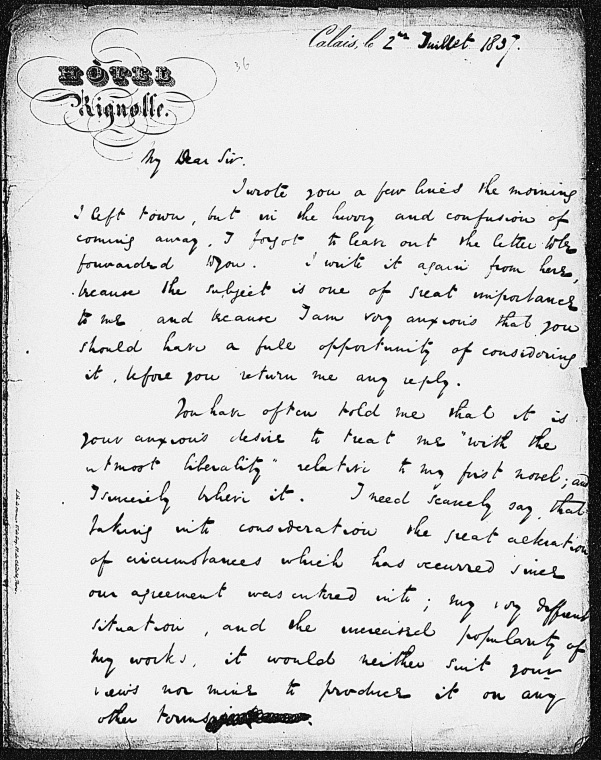 Calais, le 2me Juillet 1837.
36
HÔTEL
Rignolle.
My Dear Sir.
I wrote you a few lines the morning
I left town, but in the hurry and confusion of
coming away, I forgot to leave out the letter to be
forwarded to you. I write it again from here,
because the subject is one of great importance
to me and because I am very anxious that you
should have a full opportunity of considering
it, before you return me any reply.
You have often told me that it is
your anxious desire to treat me "with the
utmost liberality" relative to my first novel; and
I sincerely believe it. I need scarcely say, that
taking into consideration the great alteration
of circumstances which has occurred since
our agreement was entered into; my very different
situation, and the increased popularity of
my works, it would neither suit your
views nor mine to produce it on any
other terms